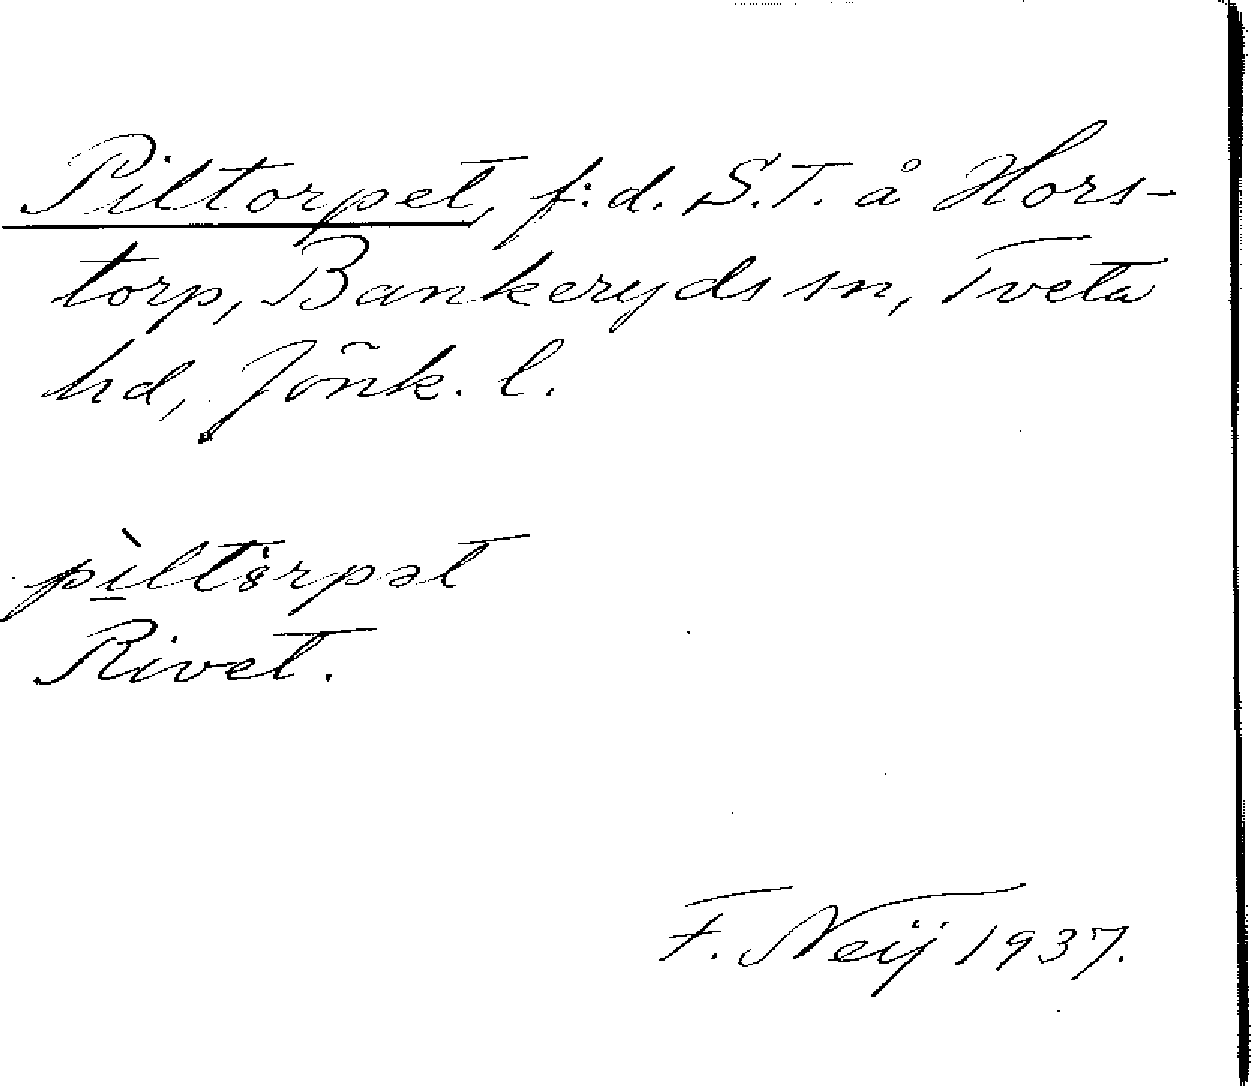 Piltorpet, f.d. S.T. å Hors-
torp, Bankeryds sn, Tveta
hd, Jönk. l.
pìltǻrpət
Rivet.
F. Neij 1937.